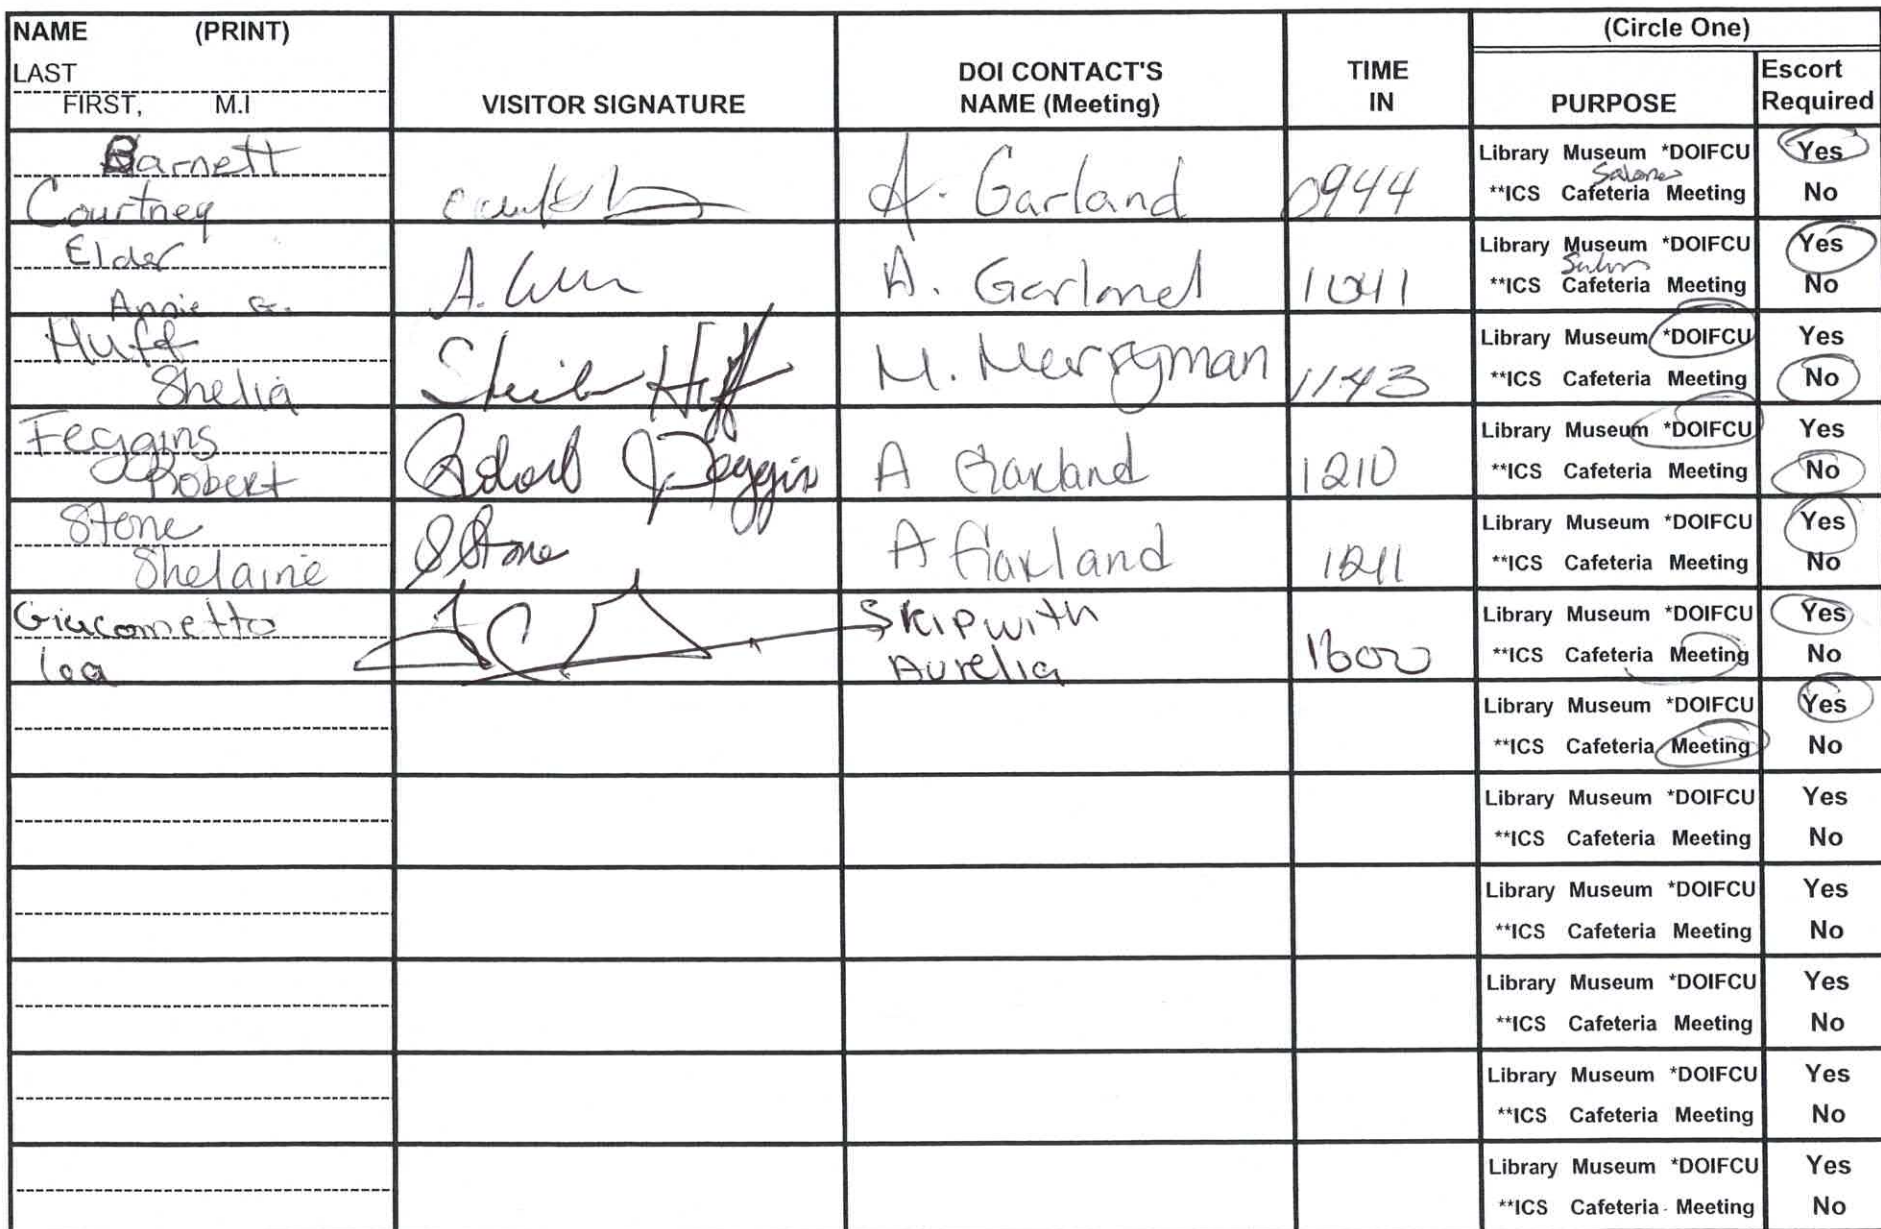 NAME (PRINT)
(Circle One)
LAST
FIRST, M.I
VISITOR SIGNATURE
DOI CONTACT'S
NAME (Meeting)
TIME
IN
PURPOSE
Escort
Required
Barnett
Courtney
A. Garland
0944
Library Museum *DOIFCU Yes
**ICS Cafeteria Meeting No
Elder
Annie G.
A. Garland
1041
Library Museum *DOIFCU Yes
**ICS Cafeteria Meeting No
Huff
Shelia
Sheila Huff
M. Merryman
1143
Library Museum *DOIFCU Yes
**ICS Cafeteria Meeting No
Feggins
Robert
Robert Feggins
A Garland
1210
Library Museum *DOIFCU Yes
**ICS Cafeteria Meeting No
Stone
Shelaine
S Stone
A Garland
1211
Library Museum *DOIFCU Yes
**ICS Cafeteria Meeting No
Giacometto
Lea
Skipwith
Aurelia
1600
Library Museum *DOIFCU Yes
**ICS Cafeteria Meeting No
Library Museum *DOIFCU Yes
**ICS Cafeteria Meeting No
Library Museum *DOIFCU Yes
**ICS Cafeteria Meeting No
Library Museum *DOIFCU Yes
**ICS Cafeteria Meeting No
Library Museum *DOIFCU Yes
**ICS Cafeteria Meeting No
Library Museum *DOIFCU Yes
**ICS Cafeteria Meeting No
Library Museum *DOIFCU Yes
**ICS Cafeteria Meeting No